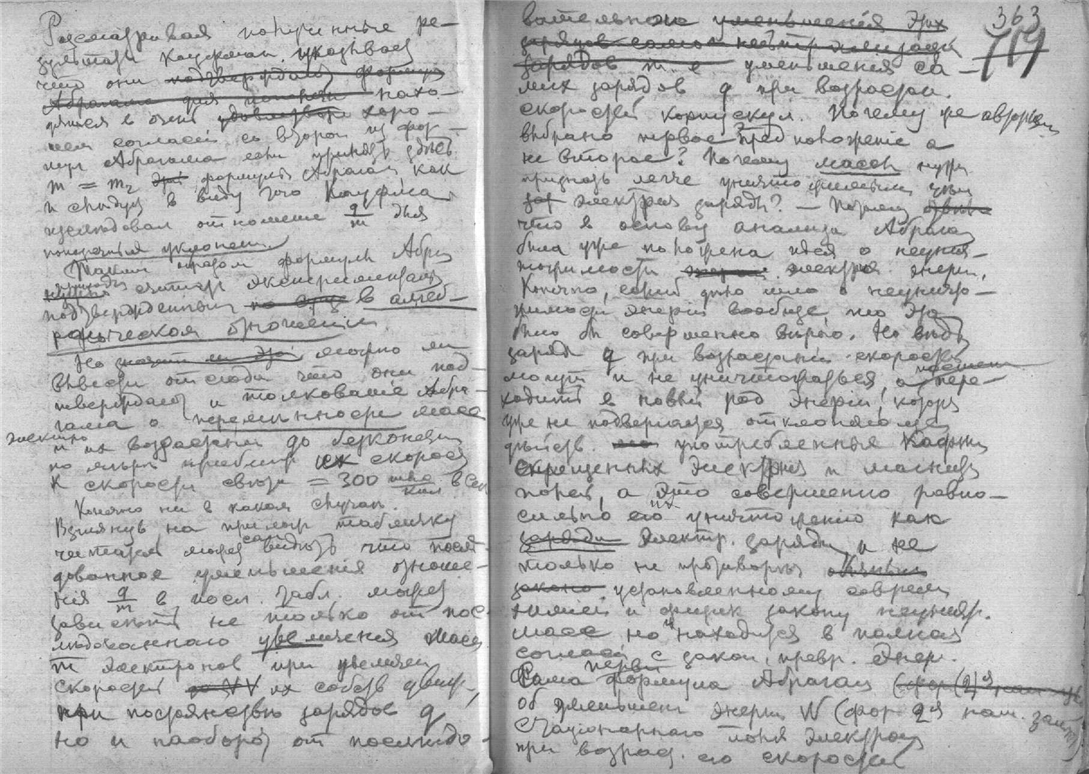 Рассматривая полученные ре-
зультаты Кауфман указывает
что они подтверждают формулу
Абрагама для нахо-
дятся в очень хоро-
шем согласии со второй из фор-
мул Абрагама если принять здесь
m = m₂ формулы Абрагама как
и следует в виду того Кауфман
изследовал отношение q/m для
поперечных уклонений
Таким образом формулы Абра
считать экспериментально
подтвержденными в алгеб-
раическом отношении
Но значит ли это можно ли
вывести отсюда что они под-
тверждают и толкование Абра-
гама о переменности масс
электро
и их возрастании до безконечн
по мере приближ их скорости
к скорости света = 300 в сек
Конечно ни в каком случае.
Взглянув на пример табличку
читатель может сам видеть что после
дованное уменьшения отноше-
ния q/m в посл. табл. может
зависеть не только от пос-
ледовательного увеличения масс
m электронов при увеличен
скоростей их собств движ.,
при постоянстве зарядов q,
но и наоборот от последо-
363
719
вательного уменьшения этих
зарядов самой нейтрализации
зарядов т е уменьшения са-
мих зарядов q при возрастан.
скоростей корпускул. Почему же автором
выбрано первое предположение а
не второе? Почему массы нужн
признать легче чем
электрич заряды? — Потому
что в основу анализа Абрагама
была уже положена идея о неуни-
тожимости электрич. энерг.
Конечно, если б дело шло о неуничто-
жимости энергии вообще, то это
было бы совершенно верно. Но ведь
заряды q при возрастании скоростей
могут и не уничтожаться, а пере-
ходить в новый род энергии, которая
уже не подвергается отклоняющ
действ. употребленных Кауфм
скрещенных электрич и магнит
полей, а это совершенно равно-
сильно их уничтожению как
заряды электр. зарядов, и не
только не противоречит
закону установленному соврем
химией и физик закону неунич.
масс но и находится в полном
согласии с закон. превр. энер.
Сама первая формула Абрагама
об уменьшен энергии W (фор 2я наш. зам.)
стационарного поля электрона
при возраст. его скоростей